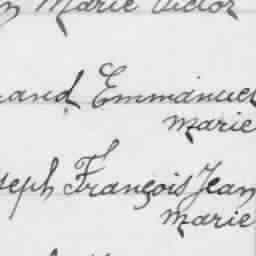 Marie Victor
Emmanuel
Marie
François Jean
Marie